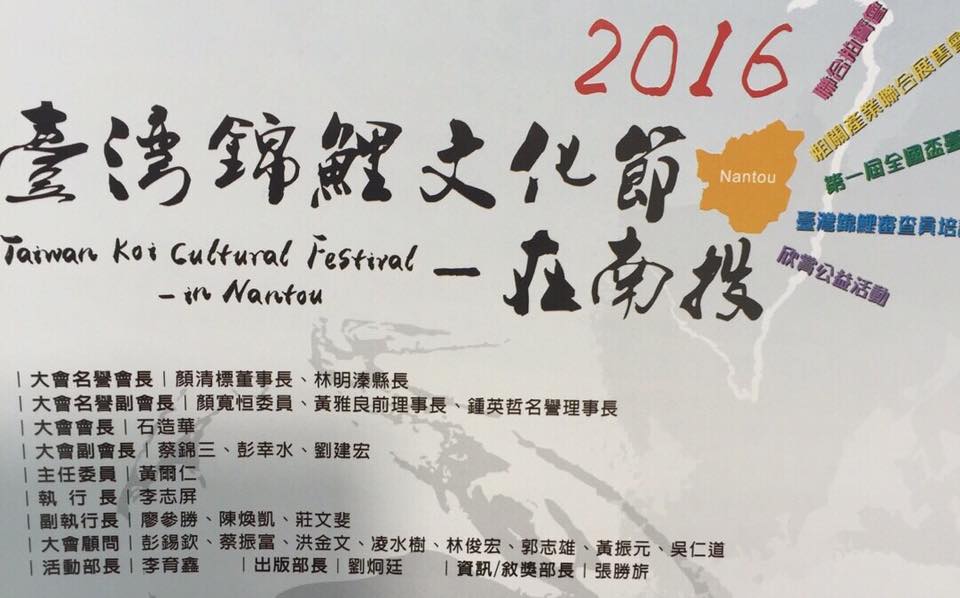 2016
臺灣錦鯉文化節
Taiwan Koi Cultural Festival
- in Nantou
－在南投
Nantou
聯合拍賣會
相關產業聯合展售會
第一屆全國盃
臺灣錦鯉審查員培
欣賞公益活動
|大會名譽會長|顏清標董事長、林明溱縣長
|大會名譽副會長|顏寬恒委員、黃雅良前理事長、鍾英哲名譽理事長
|大會會長|石造華
|大會副會長|蔡錦三、彭幸水、劉建宏
|主任委員|黃爾仁
|執 行 長|李志屏
|副執行長|廖參勝、陳煥凱、莊文斐
|大會顧問|彭錫欽、蔡振富、洪金文、凌水樹、林俊宏、郭志雄、黃振元、吳仁道
|活動部長|李育鑫 |出版部長|劉炯廷 |資訊/敘獎部長|張勝旂